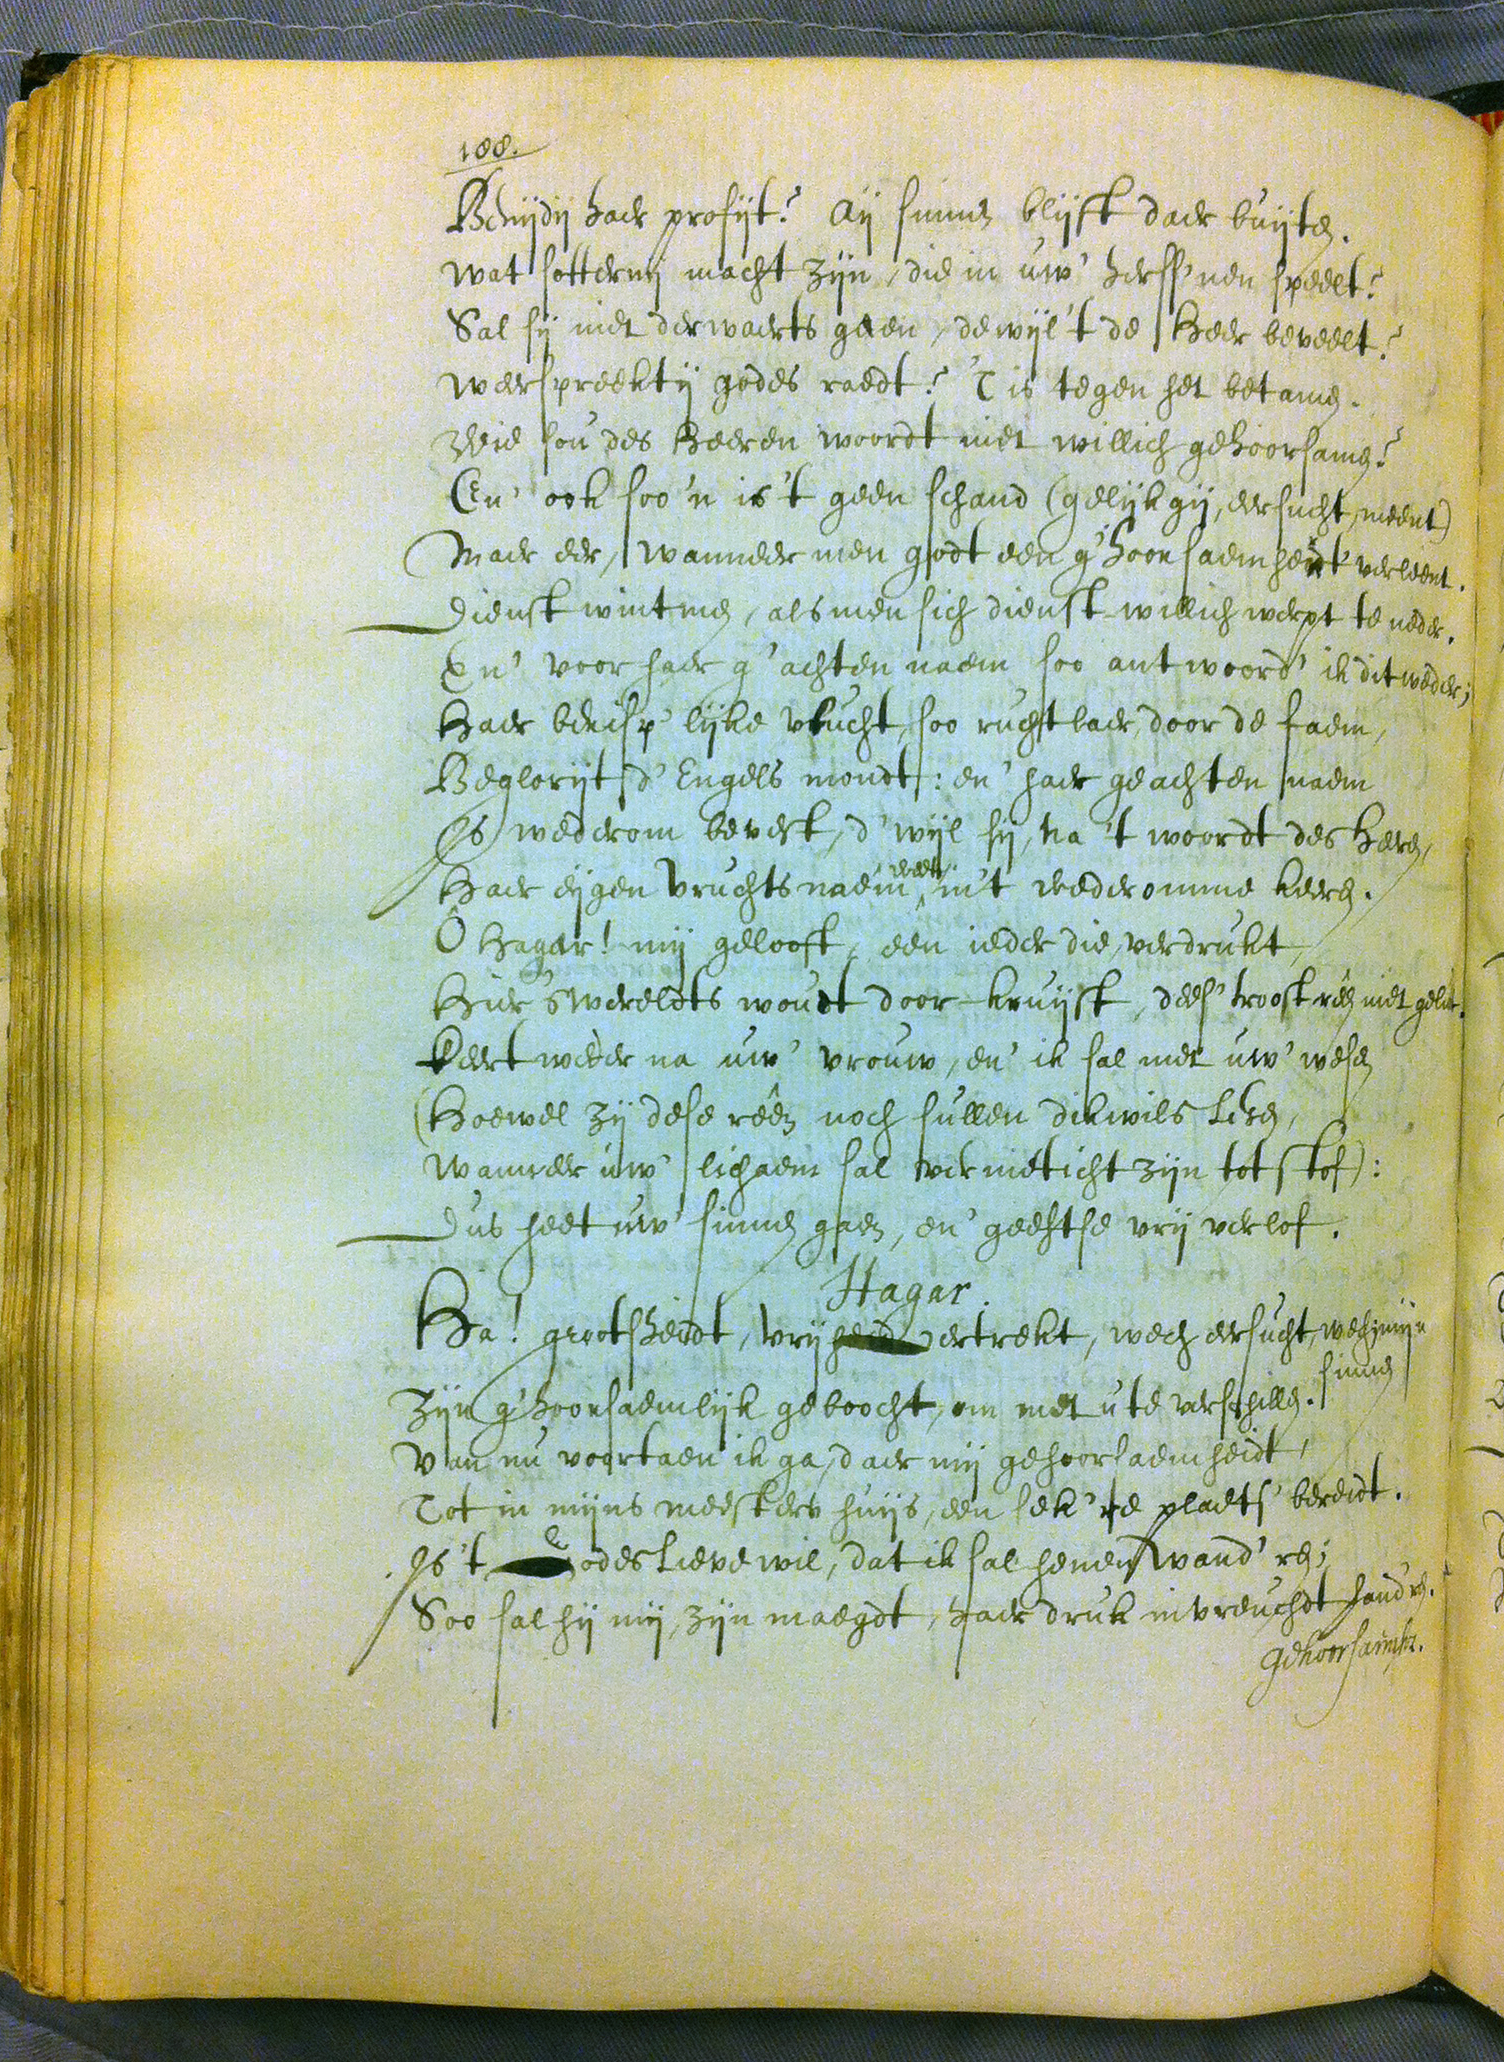 188.
Benijdij haer profijt? Aij sinnen blijft daer buijten.
Wat sotternij macht zijn, die in uw' herss'nen speelt?
Sal sij niet derwaerts gaen, dewijl 't de Heer beveelt?
Weerspreekt ij godes raedt? 'T is tegen het betamen.
Wie sou des Heeren woordt niet willich gehoorsamen?
En' ook soo 'n is 't geen schand (gelijk gij, eersucht, meent)
Maer eer, wanneer men godt een g'hoorsaemheidt verleent.
Dienst wint men, als men sich dienst-willich werpt te neder.
En' voor haer g'achten naem soo antwoord' ik dit weder;
Haer berisp'lijke vlucht, soo ruchtbaer, door de faem,
Beglorijt d' Engels mondt: en' haer geachten naem
Is wederom bevest, d'wijl sij, na 't woordt des Heren,
Haer eijgen vruchts naem weet, in 't wederomme keeren.
Ô Hagar! mij gelooft, een ieder die, verdrukt,
Hier 's werelts woudt door-kruijst, dees' troost-reen niet gelukt.
Keert weder na uw' vrouw, en' ik sal met uw' wesen
(Hoewel zij dese rêên noch sullen dikwils lesen,
Wanneer uw' lichaem sal vernieticht zijn tot stof):
Dus heet uw' sinnen gaen, en' geeftse vrij verlof.
Hagar.
Ha! grootsheidt, vrij vertrekt, wech eersucht, wech; mijn
sinnen
Zijn g'hoorsaemlijk geboocht, om met u te verschillen.
Van nu voortaen ik ga, daer mij gehoorsaemheidt,
Tot in mijns meesters huijs, een sek're plaets' bereidt.
Is 't Godes lieve wil, dat ik sal henen wand'ren;
Soo sal hij mij, zijn maegdt, haer druk in vreuchdt hand'ren.
gehoorsaemh.